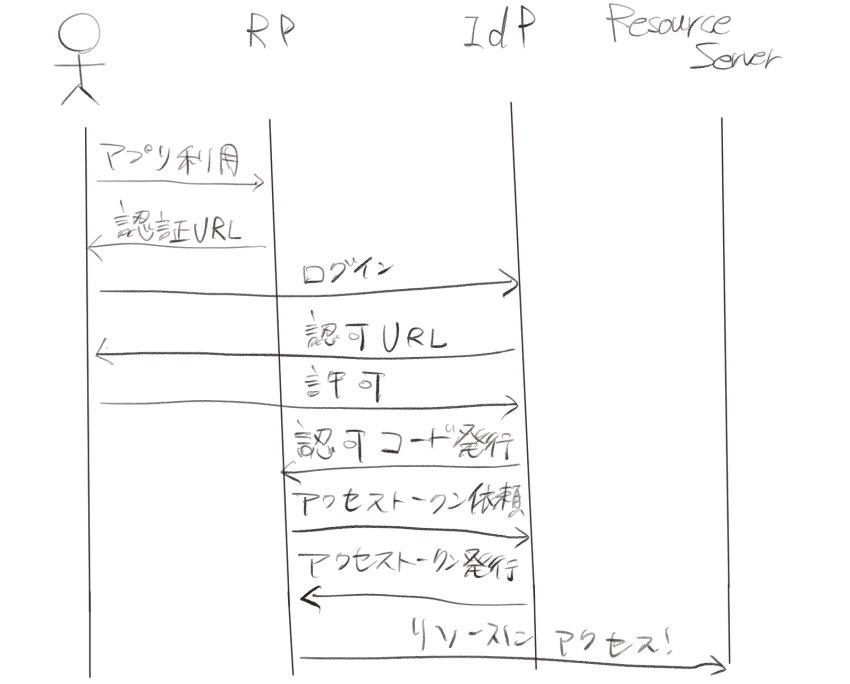 RP
IdP
Resource
Server
アプリ利用
認証URL
ログイン
認可URL
許可
認可コード発行
アクセストークン依頼
アクセストークン発行
リソースにアクセス!